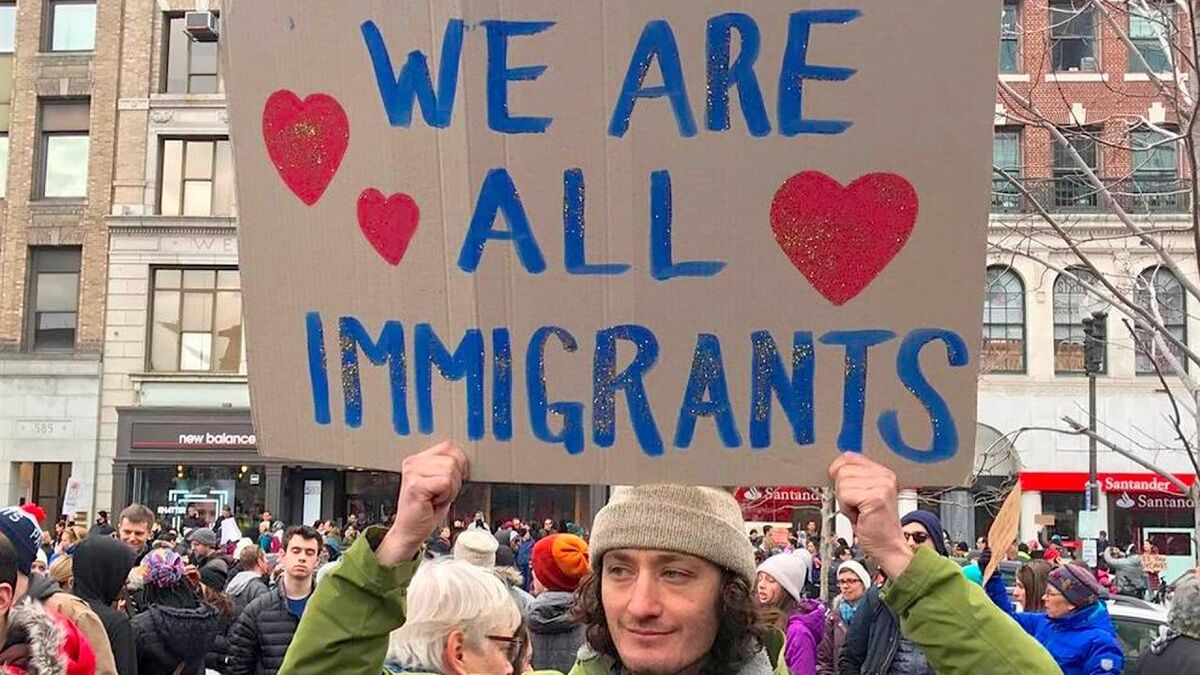 WE ARE
ALL
IMMIGRANTS
new balance
585
Santander
Santander
Santander